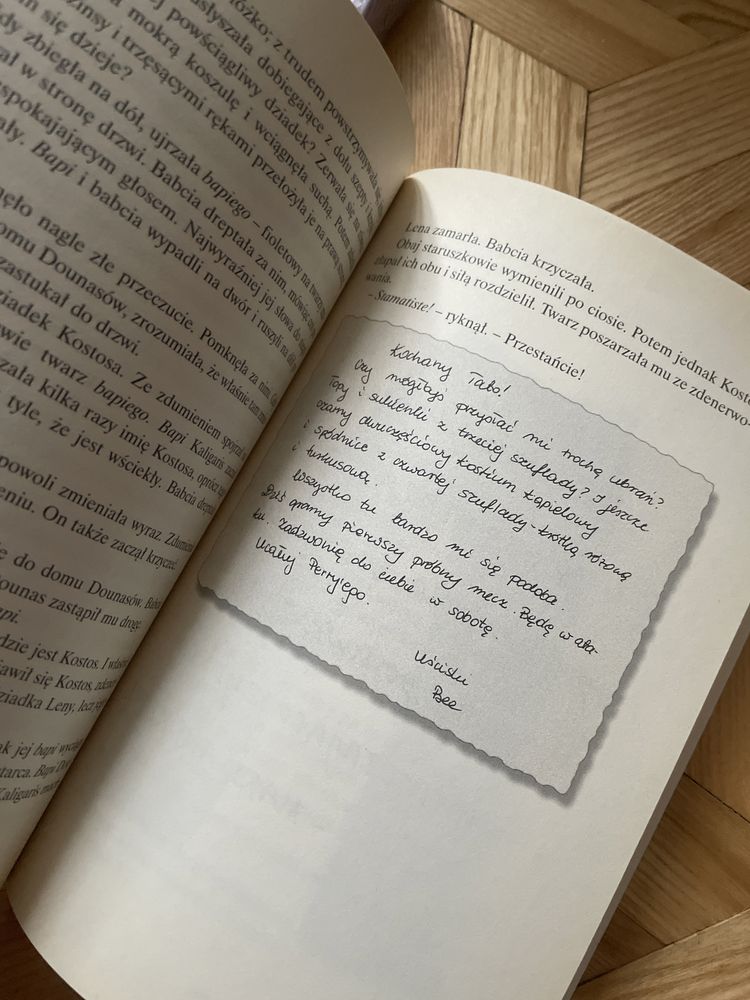 łóżko; z trudem powstrzymywała
usłyszała dobiegające z dołu szepty i
j powściągliwy dziadek? Zerwała się
a mokrą koszulę i wciągnęła suchą. Potem
żinsy i trzęsącymi rękami przełożyła je na prawą
m się dzieje?
dy zbiegła na dół, ujrzała bapiego – fioletowy na twarzy
ał w stronę drzwi. Babcia dreptała za nim, mówiąc
spokajającym głosem. Najwyraźniej jej słowa do
ały. Bapi i babcia wypadli na dwór i ruszyli na
nęło nagle złe przeczucie. Pomknęła za nimi.
domu Dounasów, zrozumiała, że właśnie tam
zastukał do drzwi.
ziadek Kostosa. Ze zdumieniem spojrzał
wie twarz bapiego. Bapi Kaligaris
zała kilka razy imię Kostosa, oprócz
tyle, że jest wściekły. Babcia
powoli zmieniała wyraz. Zdumienie
eniu. On także zaczął krzyczeć.
ę do domu Dounasów. Babcia
ounas zastąpił mu drogę.
api.
dzie jest Kostos. I
awił się Kostos,
ziadka Leny, lecz
ak jej bapi
tarca. Bapi
Kaligaris
Lena zamarła. Babcia krzyczała.
Obaj staruszkowie wymienili po ciosie. Potem jednak Kostos
złapał ich obu i siłą rozdzielił. Twarz poszarzała mu ze zdenerwo-
wania.
– Stamatiste! – ryknął. – Przestańcie!
Kochany Tabo!
Czy mogłbyś przysłać mi trochę ubrań?
Topy i sukienki z trzeciej szuflady? I jeszcze
czarny dwuczęściowy kostium kąpielowy
i spódnice z czwartej szuflady - krótką różową
i turkusową.
Wszystko tu bardzo mi się podoba.
Dziś gramy pierwszy próbny mecz. Będę w ata-
ku. Zadzwonię do ciebie w sobotę.
Ucałuj Perry'ego.
Uściski
Bee